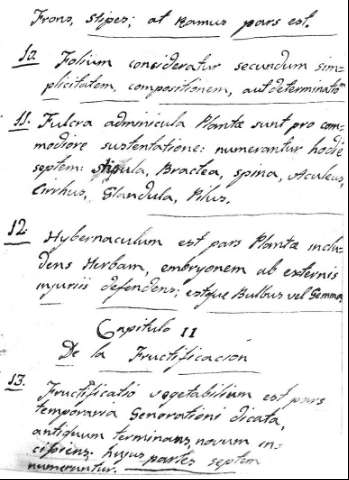 Frons, Stipes; at Ramus pars est.
10. Folium consideratur secundum sim-
plicitatem, compositionem, aut determinatom
11. Fulcra adminicula Plantæ sunt pro com-
modiore sustentatione: numerantur hodie
septem: Stipula, Bractea, spina, Aculeus,
Cirrhus, Glandula, Pilus.
12. Hybernaculum est pars Plantæ inclu-
dens Herbam, embryonem ab externis
injuriis defendens; estque Bulbus vel Gemma
Capitulo II
De la Fructificacion
13. Fructificatio vegetabilium est pars
temporaria Generationi dicata,
antiquum terminans, novum in-
cipiens: hujus partes septem
numerantur.